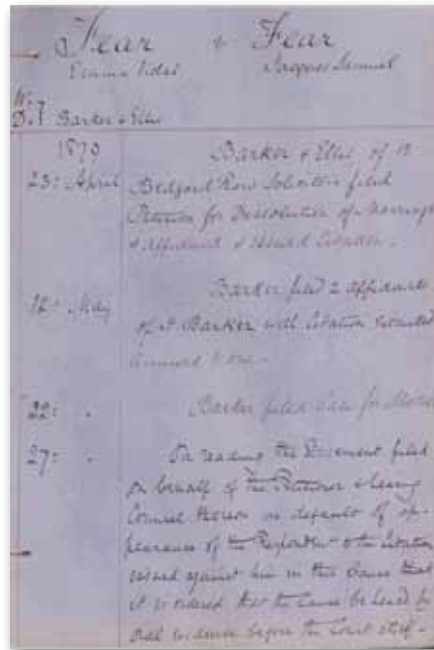 Fear v Fear
Emma Vidal Jacques Samuel
D.J Barker & Ellis
1879
23: April Barker & Ellis of 12
Bedford Row Solicitors filed
Petition for Dissolution of Marriage
& Affidavit & issued Citation.
12: May Barker filed 2 affidavits
of Barker with Citation
annexed
22: " Barker filed Case for
27: " On reading the filed
on behalf of the Petitioner & hearing
Counsel thereon in default of ap-
pearance of the Respondent to the Citation
issued against him in this Cause
it is ordered that the Cause be heard by
oral evidence before the Court itself-